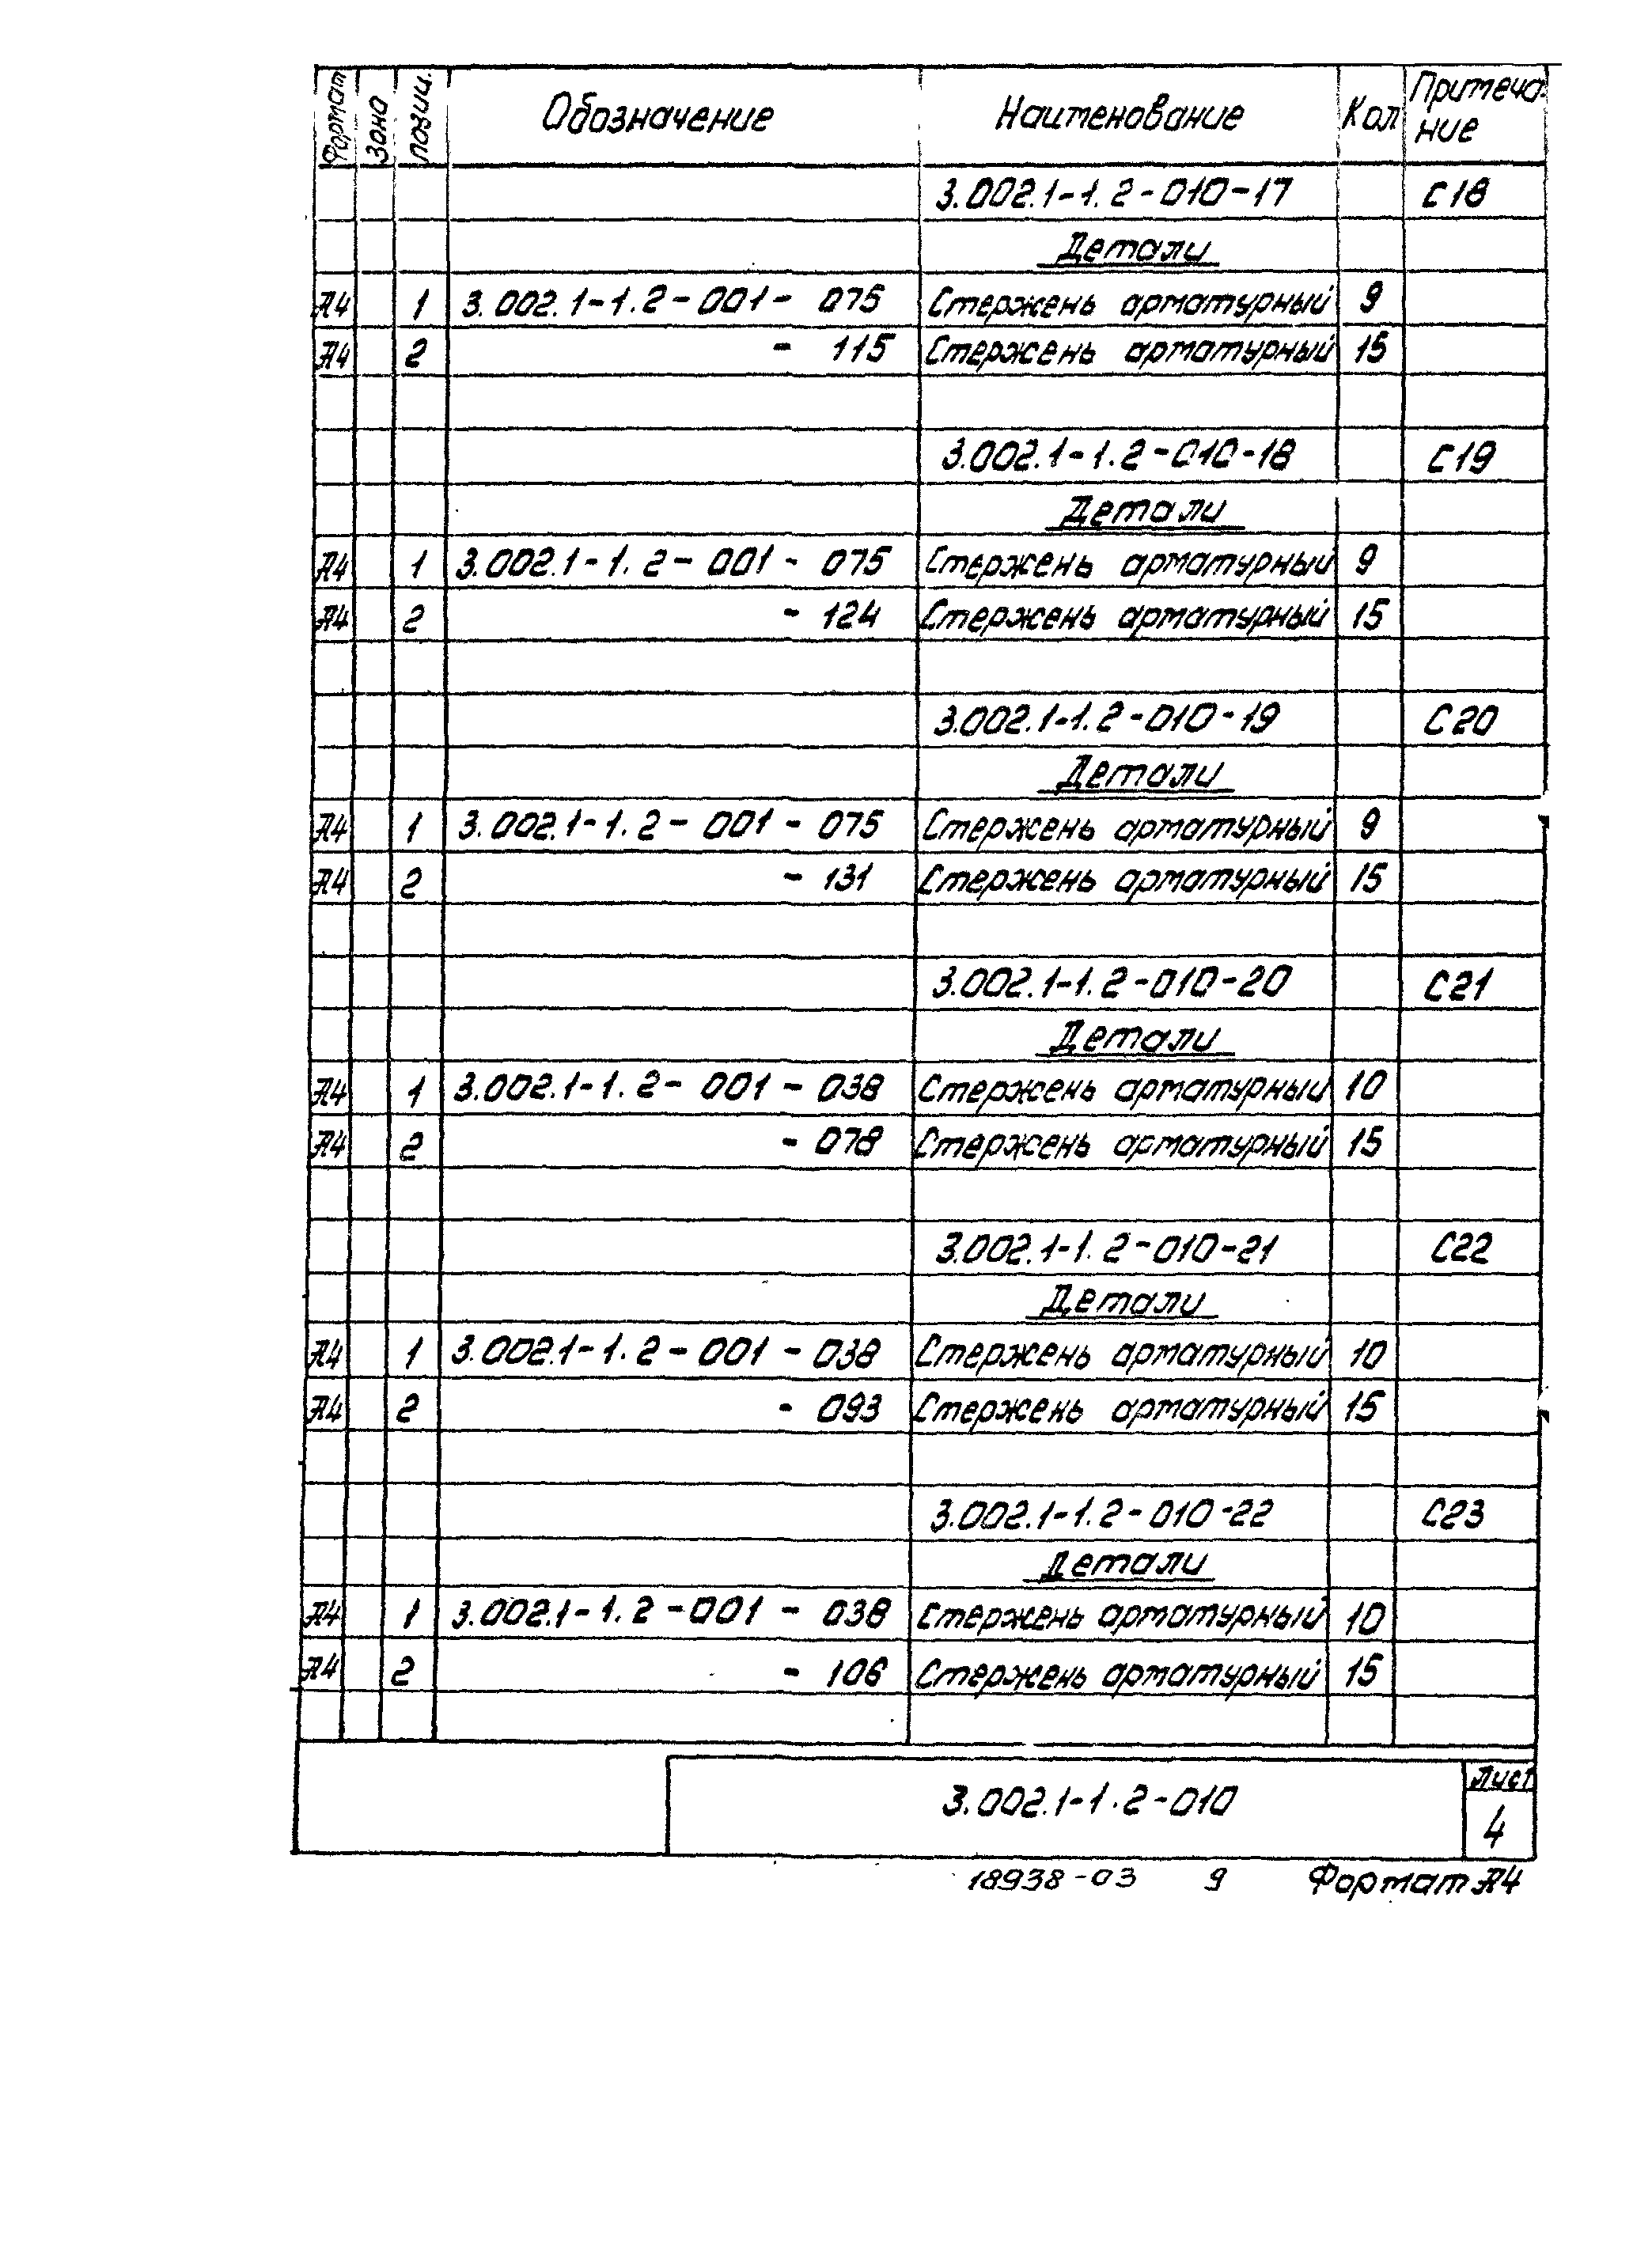 Формат Зона Позиц. Обозначение Наименование Кол Примеча-
ние
3.002.1-1.2-010-17 С18
Детали
А4 1 3.002.1-1.2-001-075 Стержень арматурный 9
А4 2 - 115 Стержень арматурный 15
3.002.1-1.2-010-18 С19
Детали
А4 1 3.002.1-1.2-001-075 Стержень арматурный 9
А4 2 - 124 Стержень арматурный 15
3.002.1-1.2-010-19 С20
Детали
А4 1 3.002.1-1.2-001-075 Стержень арматурный 9
А4 2 - 131 Стержень арматурный 15
3.002.1-1.2-010-20 С21
Детали
А4 1 3.002.1-1.2-001-038 Стержень арматурный 10
А4 2 - 078 Стержень арматурный 15
3.002.1-1.2-010-21 С22
Детали
А4 1 3.002.1-1.2-001-038 Стержень арматурный 10
А4 2 - 093 Стержень арматурный 15
3.002.1-1.2-010-22 С23
Детали
А4 1 3.002.1-1.2-001-038 Стержень арматурный 10
А4 2 - 106 Стержень арматурный 15
3.002.1-1.2-010
Лист
4
18938-03 9 Формат А4